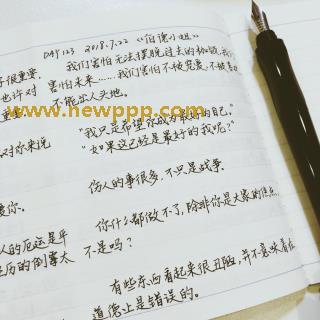 DAY123 2018.7.22 《伯德小姐》
我们害怕无法摆脱过去的
子很重要,
害怕未来……我们害怕不被宽恕,不被
也许对
不能出人头地。
重
www.newppp.com
“我只是希望你成为最好的自己。”
对你来说
“如果这已经是最好的我呢?”
伤人的事很多,不只是战争。
爱你。
你什么都做不了,除非你是大家的焦点
人的厄运是平
不是吗?
历的倒霉太
有些东西看起来很丑陋,并不意味着在
道德上是错误的。